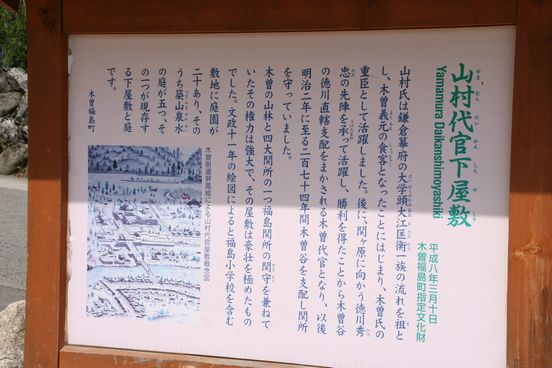 山村代官下屋敷
Yamamura Daikanshimoyashiki
平成八年三月十日
木曽福島町指定文化財
山村氏は鎌倉幕府の大学頭大江匡衡一族の流れを祖と
し、木曽義元の食客となったことにはじまり、木曽氏の
重臣として活躍しました。後に、関ヶ原に向かう徳川秀
忠の先陣を承って活躍し、勝利を得たことから木曽谷
の徳川直轄支配をまかされる木曽代官となり、以後
明治二年に至る二百七十四年間木曽谷を支配し関所
を守っていました。
木曽の山林と四大関所の一つ福島関所の関守を兼ねて
いたその権力は強大で、その屋敷は豪壮を極めたもの
でした。文政十一年の絵図によると福島小学校を含む
敷地に庭園が
二十あり、その
うち築山泉水
の庭が五つ、そ
の一つが現存す
る下屋敷と庭
です。
木曽福島町
木曽街道屏風絵による山村代官屋敷概念図